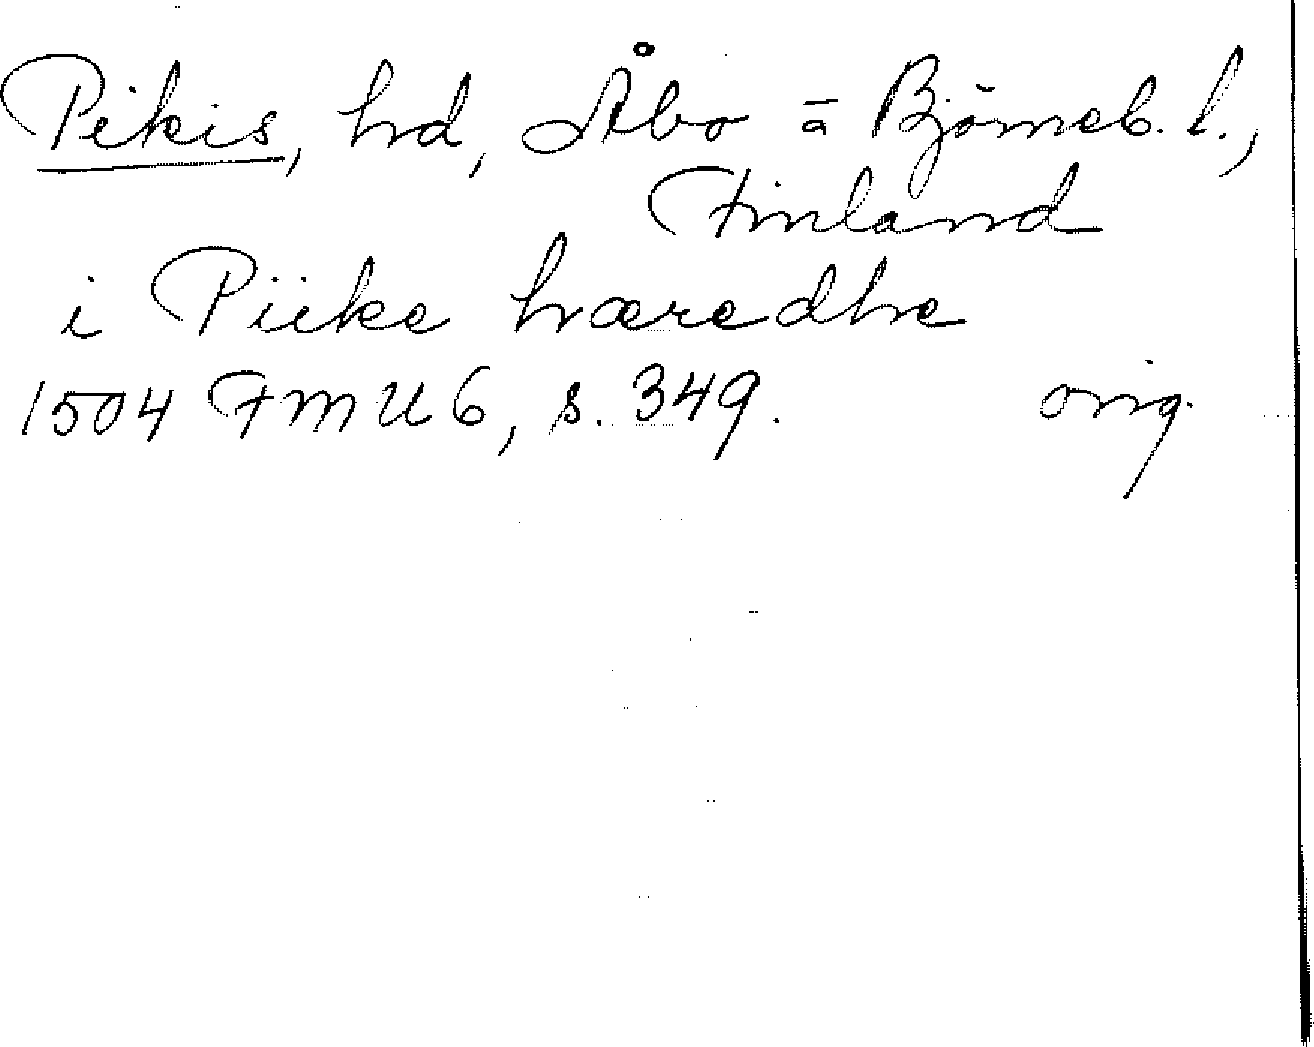 Pikis, hd, Åbo = Björneb. l.,
Finland
i Piike hæredhe
1504 FMU 6, s. 349. orig.